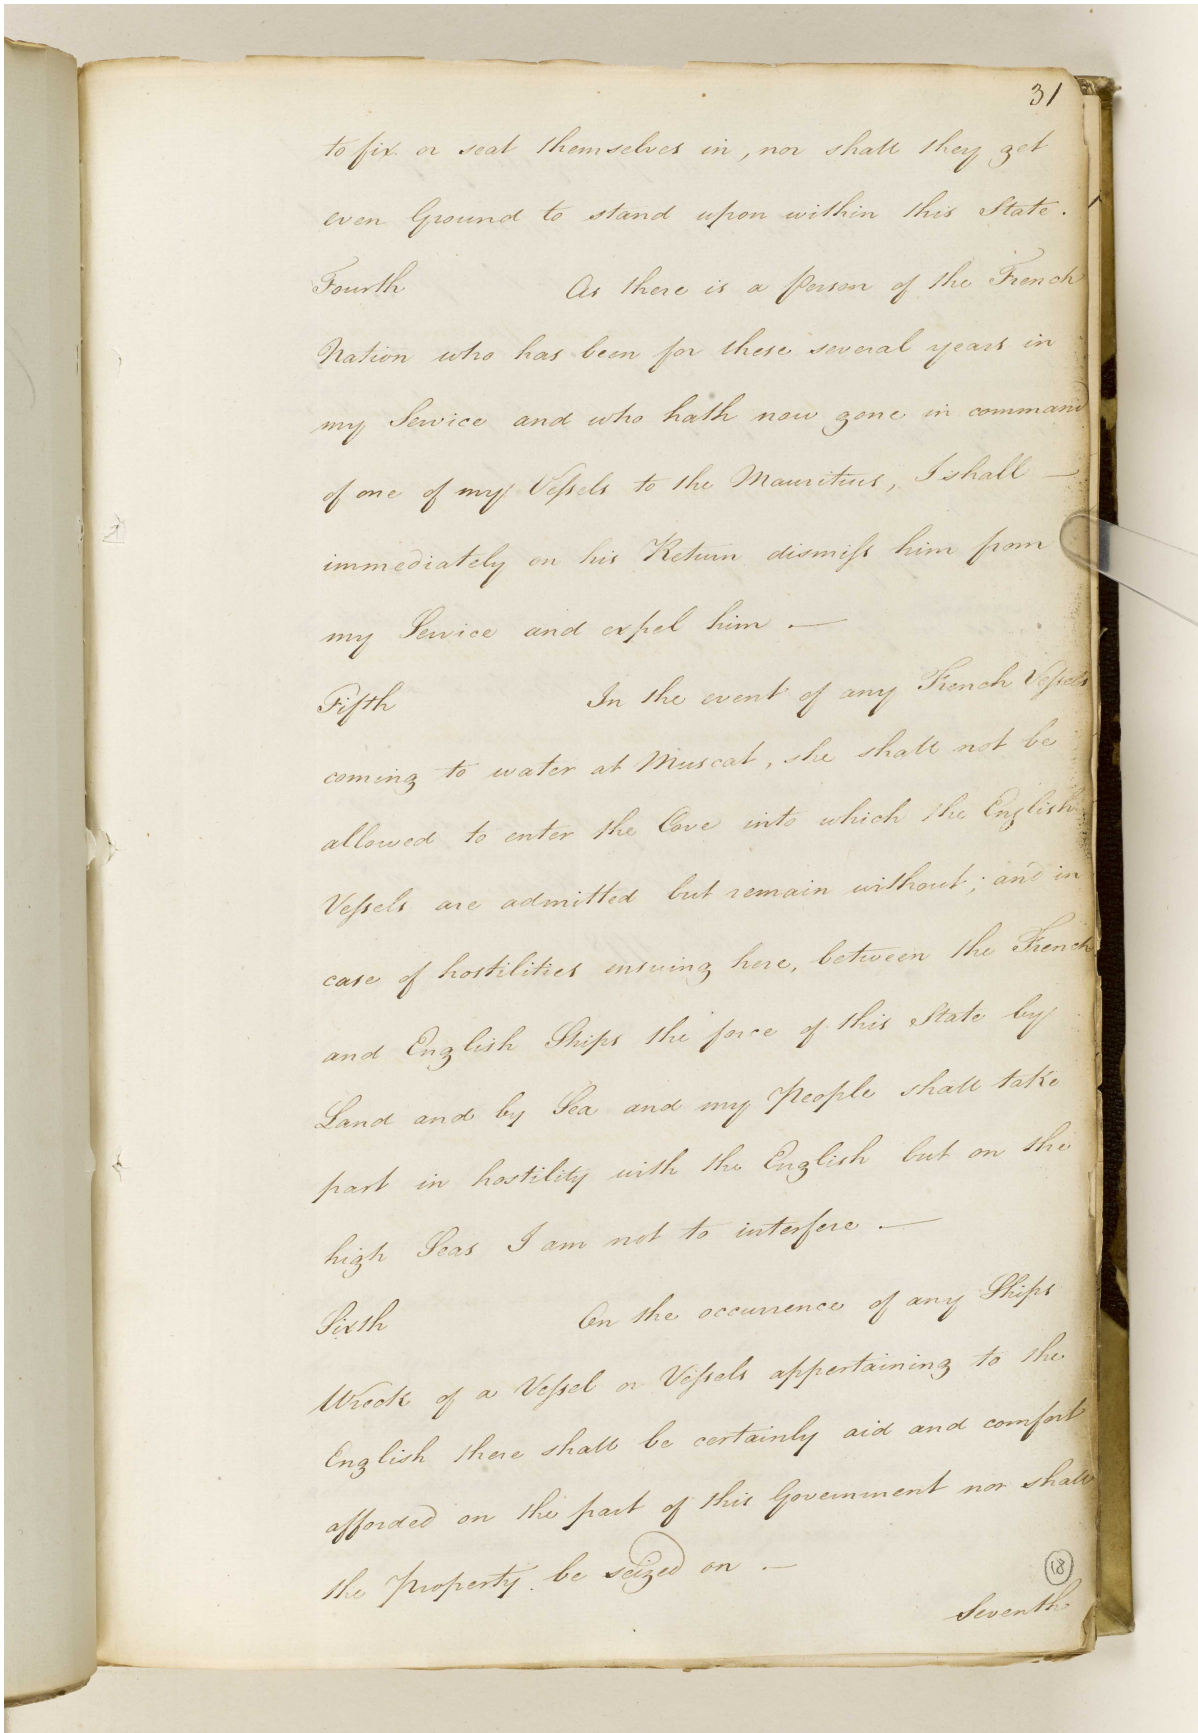 31
to fix or seat themselves in, nor shall they get
even Ground to stand upon within this State.
Fourth As there is a Person of the French
Nation who has been for these several years in
my Service and who hath now gone in command
of one of my Vessels to the Mauritius, I shall —
immediately on his Return dismiss him from
my Service and expel him —
Fifth In the event of any French Vessels
coming to water at Muscat, she shall not be
allowed to enter the Cove into which the English
Vessels are admitted but remain without; and in
case of hostilities ensuing here, between the French
and English Ships the force of this State by
Land and by Sea and my People shall take
part in hostility with the English but on the
high Seas I am not to interfere —
Sixth On the occurrence of any Ships
Wreck of a Vessel or Vessels appertaining to the
English there shall be certainly aid and comfort
afforded on the part of this Government nor shall
the Property be seized on —
18
Seventh